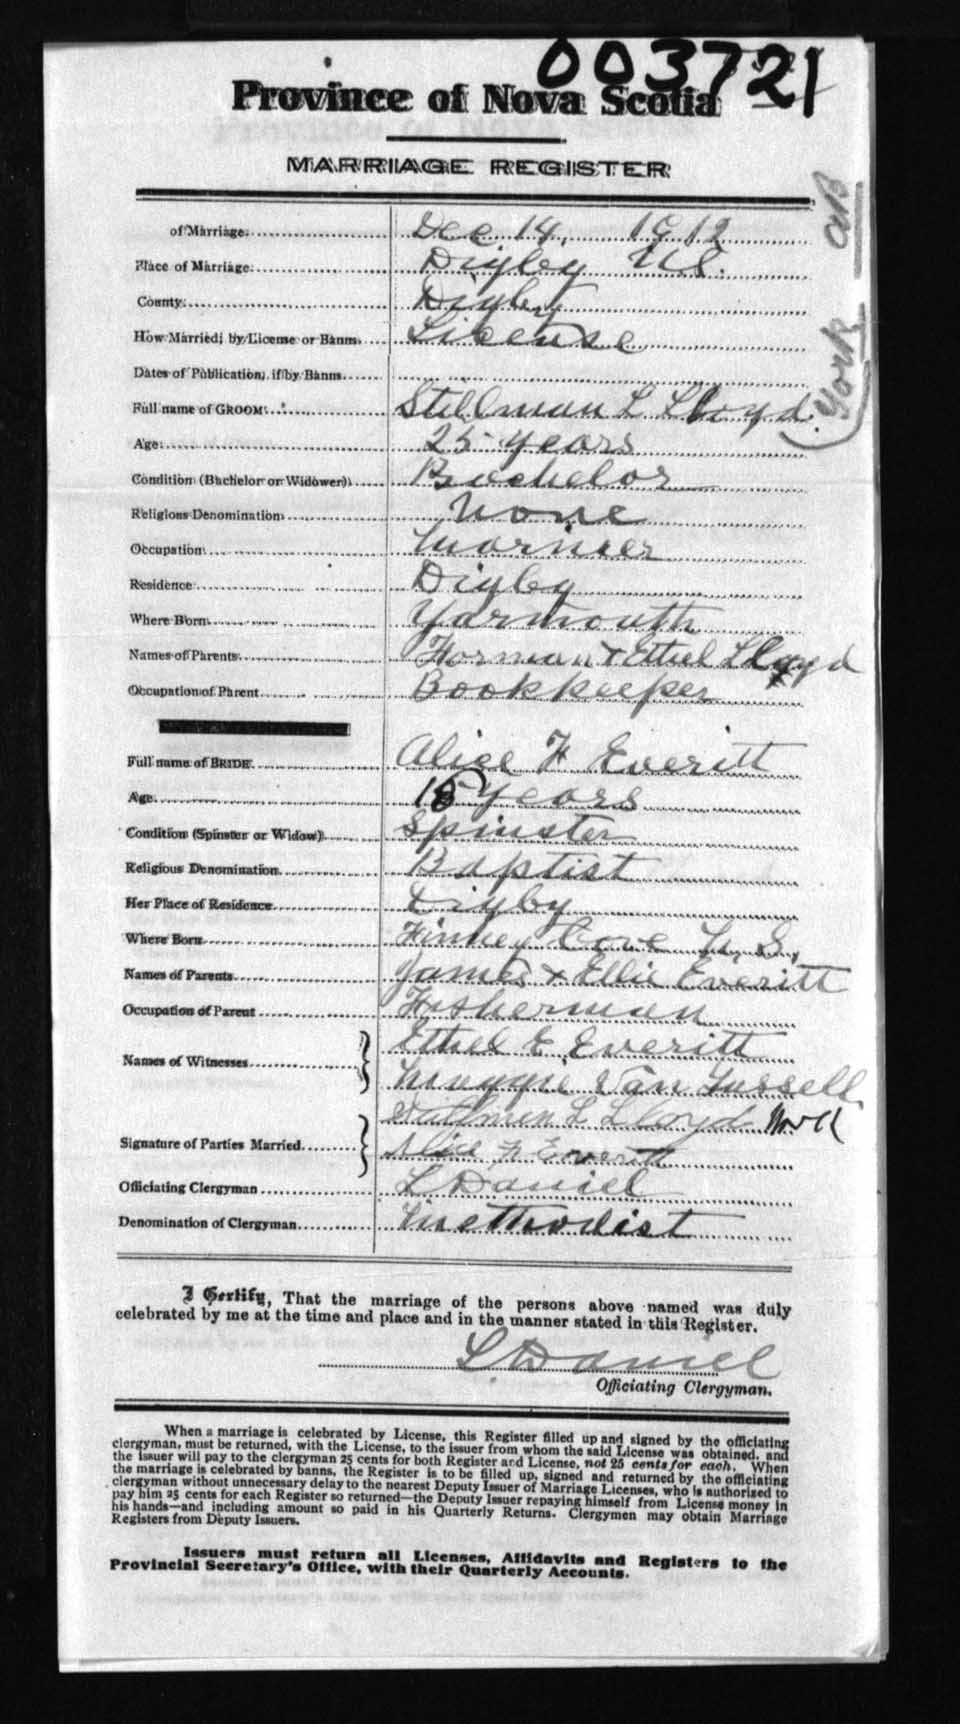 003721
Province of Nova Scotia
MARRIAGE REGISTER
of Marriage Dec 14, 1912
Place of Marriage Digby N.S.
County Digby
How Married; by License or Banns License
Dates of Publication, if by Banns
Full name of GROOM Stillman L Lloyd
Age 25 years
Condition (Bachelor or Widower) Bachelor
Religious Denomination None
Occupation Mariner
Residence Digby
Where Born Yarmouth
Names of Parents Forman & Ethel Lloyd
Occupation of Parent Bookkeeper
Full name of BRIDE Alice F Everitt
Age 18 years
Condition (Spinster or Widow) Spinster
Religious Denomination Baptist
Her Place of Residence Digby
Where Born Tinney Cove N.S.
Names of Parents James & Ellie Everitt
Occupation of Parent Fisherman
Names of Witnesses Ethel E Everitt
Maggie Van Tassell
Signature of Parties Married Stillman L Lloyd
Alice F Everitt
Officiating Clergyman L Daniel
Denomination of Clergyman Methodist
I Certify, That the marriage of the persons above named was duly
celebrated by me at the time and place and in the manner stated in this Register.
L. Daniel
Officiating Clergyman.
When a marriage is celebrated by License, this Register filled up and signed by the officiating
clergyman, must be returned, with the License, to the issuer from whom the said License was obtained, and
the issuer will pay to the clergyman 25 cents for both Register and License, not 25 cents for each. When
the marriage is celebrated by banns, the Register is to be filled up, signed and returned by the officiating
clergyman without unnecessary delay to the nearest Deputy Issuer of Marriage Licenses, who is authorized to
pay him 25 cents for each Register so returned—the Deputy Issuer repaying himself from License money in
his hands—and including amount so paid in his Quarterly Returns. Clergymen may obtain Marriage
Registers from Deputy Issuers.
Issuers must return all Licenses, Affidavits and Registers to the
Provincial Secretary's Office, with their Quarterly Accounts.
York